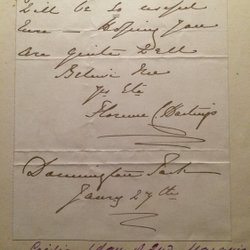 will be so useful
Ever — Hoping you
are quite well
Believe me
Yrs Etc
Florence C Hastings
Donnington Park
Janry 27th